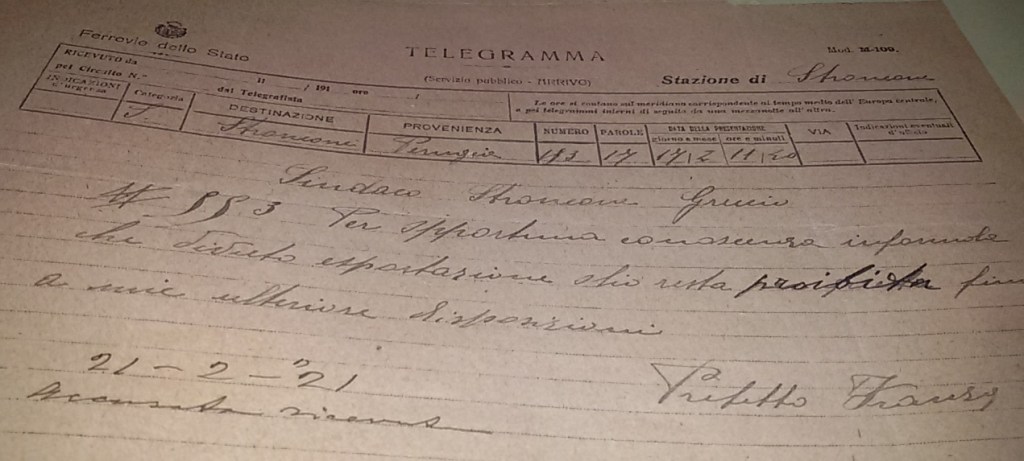 Ferrovie dello Stato
TELEGRAMMA
Mod. M-109.
(Servizio pubblico - ARRIVO)
Stazione di Stroncone
RICEVUTO da
il / 191 ore
pel Circuito N.°
dal Telegrafista
Le ore si contano sul meridiano corrispondente al tempo medio dell' Europa centrale,
e pei telegrammi interni di seguito da una mezzanotte all' altra.
INDICAZIONI d'urgenza Categoria DESTINAZIONE PROVENIENZA NUMERO PAROLE DATA DELLA PRESENTAZIONE giorno e mese ore e minuti VIA Indicazioni eventuali d'ufficio
Stroncone Perugia 183 17 17/2 11,20
Sindaco Stroncone Greccio
N 553 Per opportuna conoscenza informola
che divieto esportazione olio resta proibita fino
a mie ulteriore disposizioni
Prefetto
21-2-"21